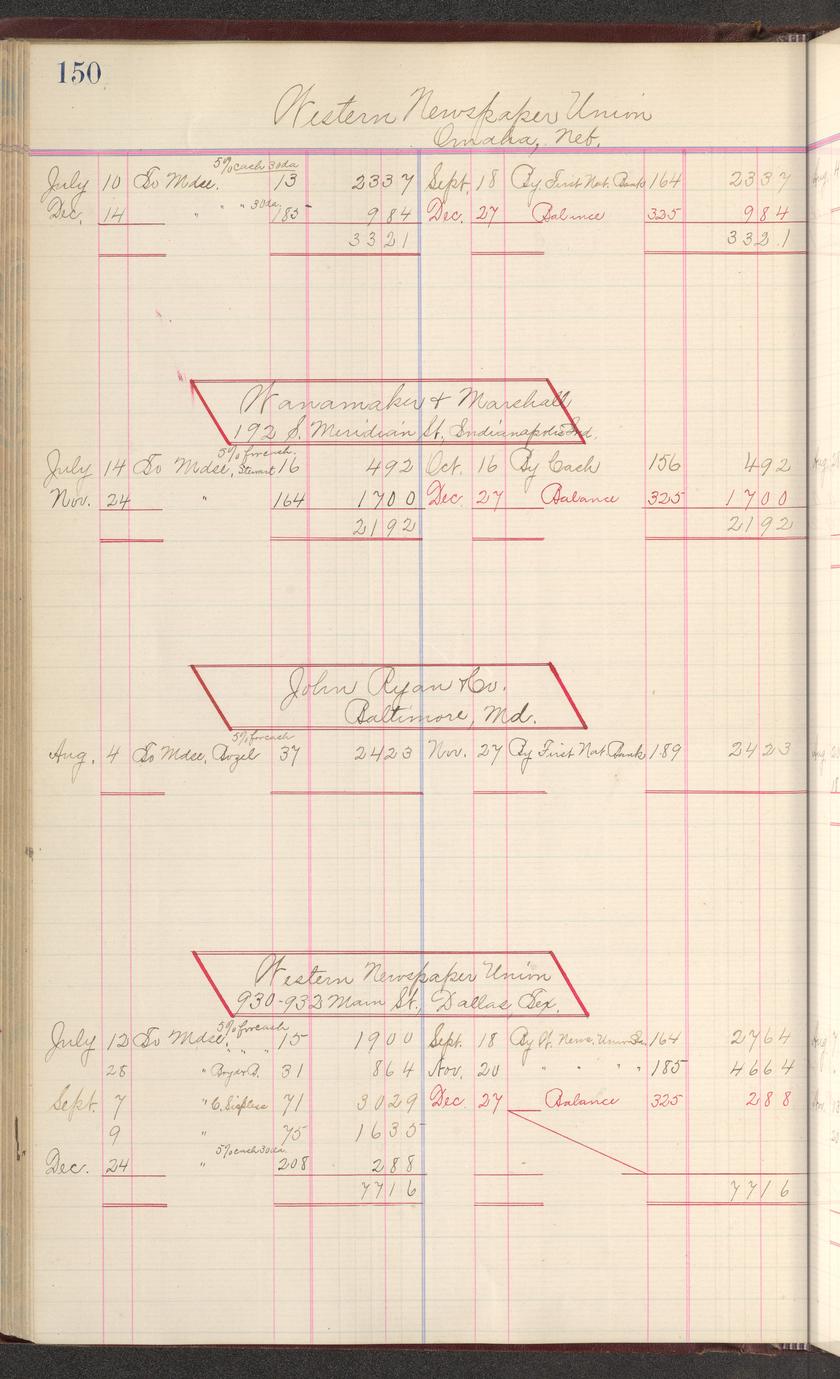 150
Western Newspaper Union
Omaha, Neb.
5% cash 30da
July 10 To Mdse. 13 2337 Sept. 18 By First Nat. Bank 164 2337
Dec. 14 " " " 30da. 185 984 Dec. 27 Balance 325 984
3321 3321
Wanamaker & Marshall
192 S. Meridian St, Indianapolis Ind.
5% for cash.
July 14 To Mdse, Stewart 16 492 Oct. 16 By Cash 156 492
Nov. 24 " 164 1700 Dec. 27 Balance 325 1700
2192 2192
John Ryan & Co.
Baltimore, Md.
5% for cash
Aug. 4 To Mdse, Bozel 37 2423 Nov. 27 By First Nat Bank 189 2423
Western Newspaper Union
930-932 Main St., Dallas, Tex.
5% for cash
July 12 To Mdse. 15 1900 Sept. 18 By W. News. Union 164 2764
" " "
28 " 31 864 Nov. 20 " " " " 185 4664
Sept. 7 " C. 71 3029 Dec. 27 Balance 325 288
9 " 75 1635
5% cash 30da.
Dec. 24 " 208 288
7716 7716